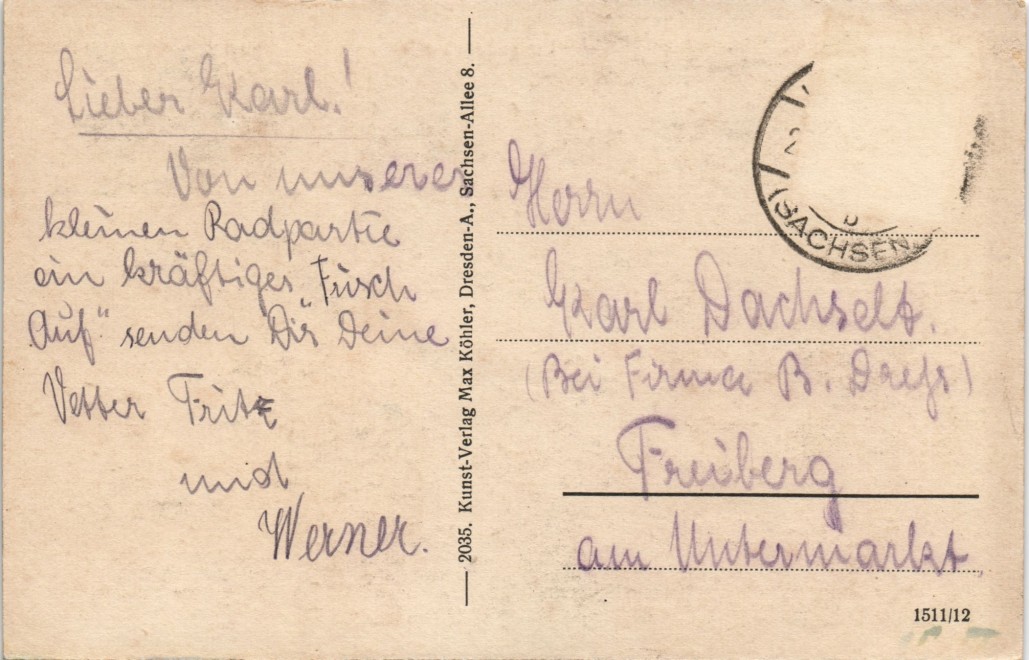 Lieber Karl!
Von unserer
kleinen Radpartie
ein kräftiges „Frisch
Auf" senden Dir Deine
Vetter Fritz
und
Werner.
2035. Kunst-Verlag Max Köhler, Dresden-A., Sachsen-Allee 8.
(SACHSEN
Herrn
Karl Dachselt.
(Bei Firma B.
Freiberg
am Untermarkt.
1511/12